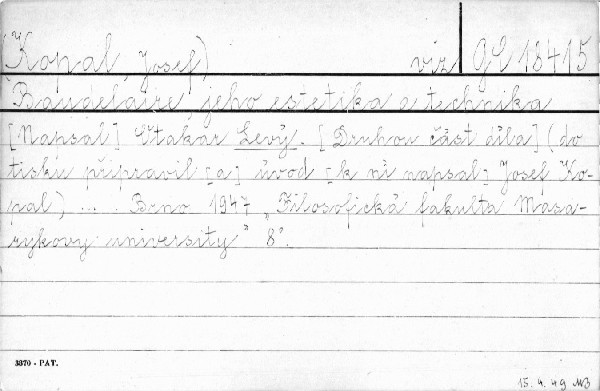 (Kopal, Josef) viz GC 18415
Baudelaire, jeho estetika a technika
[Napsal] Otakar Levý. [Druhou část díla] (do
tisku připravil [a] úvod [k ní napsal] Josef Ko-
pal) ... . Brno 1947 „Filosofická fakulta Masa-
rykovy university" 8°.
3870 - PAT.
15. 4. 49 MB